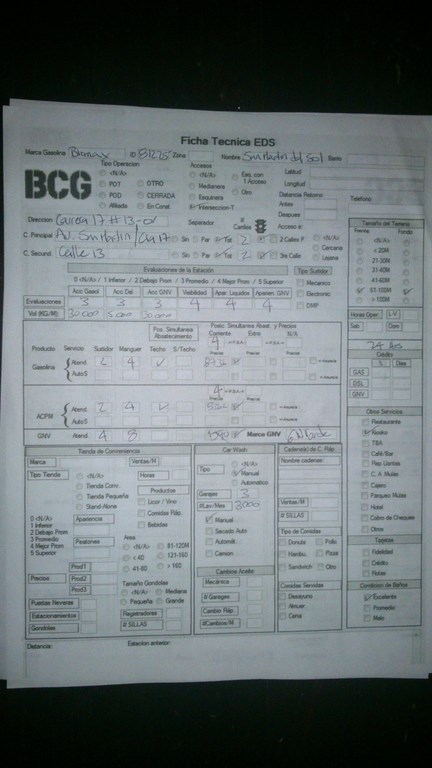 Ficha Tecnica EDS
Marca Gasolina Biomax ID Zona Nombre San Martin del Sol Barrio
BCG
Tipo Operacion
<N/A>
PDT OTRO
POD CERRADA
Afiliada En Const.
Accesos
<N/A> Esq. con 1 Acceso
Medianera Otro
Esquinera
Interseccion-T
Latitud
Longitud
Distancia Retorno
Antes
Despues
Telefono
Direccion Carrera 17 # 13-01 Separador # Carriles Acceso a:
C. Principal Av. San Martin / Cra 17 Sin Par Tot 2 2 Calles F <N/A>
C. Secund. Calle 13 Sin Par Tot 2 3ra Calle Cercana
Lejana
Evaluaciones de la Estación
0 <N/A> / 1 Inferior / 2 Debajo Prom / 3 Promedio / 4 Mejor Prom / 5 Superior
Acc Gasol Acc Del Acc GNV Visibilidad Apar. Liquidos Aparien. GNV
Evaluaciones 3 3 3 4 4 4
Vol (KG/M) 30.000 5.000 30.000
Tipo Surtidor
Mecanico
Electronic
DMP
Tamaño del Terreno
Frente Fondo
<N/A>
< 20M
21-30M
31-40M
41-60M
61-100M
> 100M
Horas Oper L-V
Sab Dom
24 hrs
Pos. Simultanea Abastecimiento
Posic. Simultanea Abast. y Precios
Producto Servicio Surtidor Manguer Techo S/Techo
Gasolina Atend. 2 4
AutoS
ACPM Atend. 2 4
AutoS
GNV Atend 4 8 Marca GNV
Credito
% Dias
GAS
DSL
GNV
Tienda de Conveniencia
Marca Ventas/M
Tipo Tienda <N/A> Horas
Tienda Conv.
Tienda Pequeña
Stand Alone
Productos
Licor / Vino
Comidas Ráp.
Bebidas
0 <N/A>
1 Inferior
2 Debajo Prom
3 Promedio
4 Mejor Prom
5 Superior
Apariencia
Peatones
Area
<N/A> 81-120M
< 40 121-160
41-80 > 160
Precios Prod1
Prod2
Prod3
Tamaño Gondolas
<N/A> Mediana
Pequeña Grande
Puertas Neveras
Estacionamientos
Gondolas
Registradores
# SILLAS
Car Wash
Tipo <N/A>
Manual
Automatico
Garajes 3
#Lav/Mes 3000
Manual
Secado Auto
Automatk.
Camion
Cambios Aceite
Mecánica
# Garages
Cambio Ráp.
#Cambios/M
Cadena(s) de C. Ráp.
Nombre cadenas:
Ventas/M
# SILLAS
Tipo de Comidas
Donuts Pollo
Hambu. Pizza
Sandwich Otro
Comidas Servidas
Desayuno
Almuer.
Cena
Otros Servicios
Restaurante
Kiosko
TBA
Café/Bar
Rep Llantas
C. A. Mulas
Cajero
Parqueo Mulas
Hotel
Cobro de Cheques
Otros
Tarjetas
Fidelidad
Crédito
Flotas
Condicion de Baños
Excelente
Promedio
Malo
Distancia: Estacion anterior: